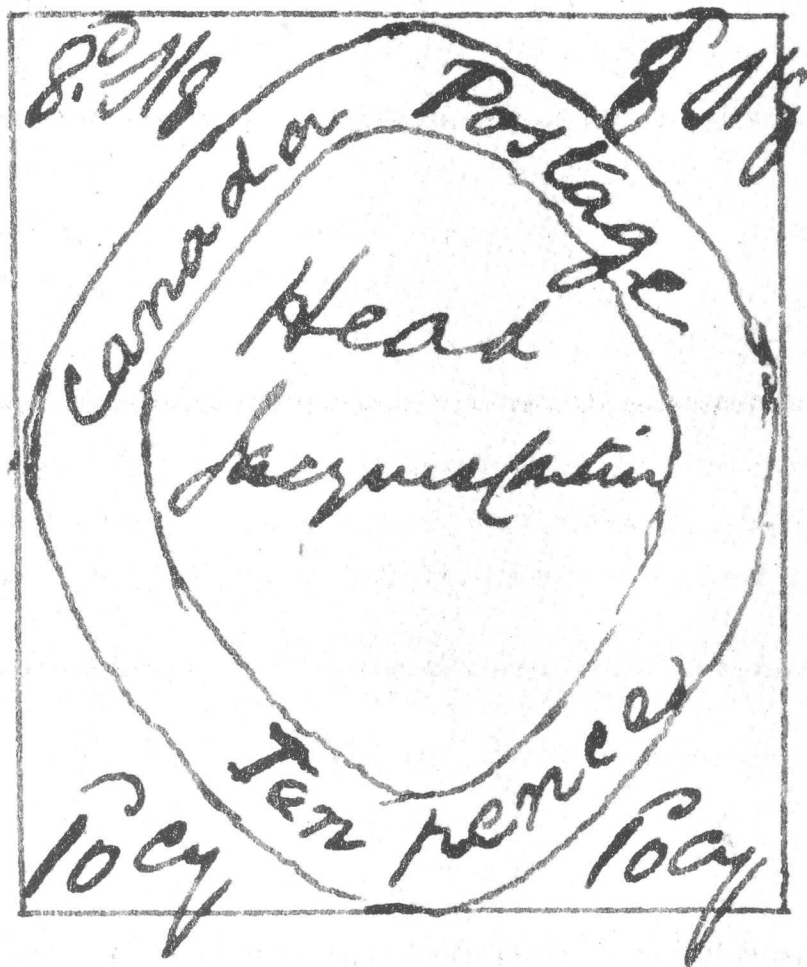 8.P Stg
8 P Stg
Canada Postage
Head
Jacques Cartier
Ten pence
10 cy
10 cy